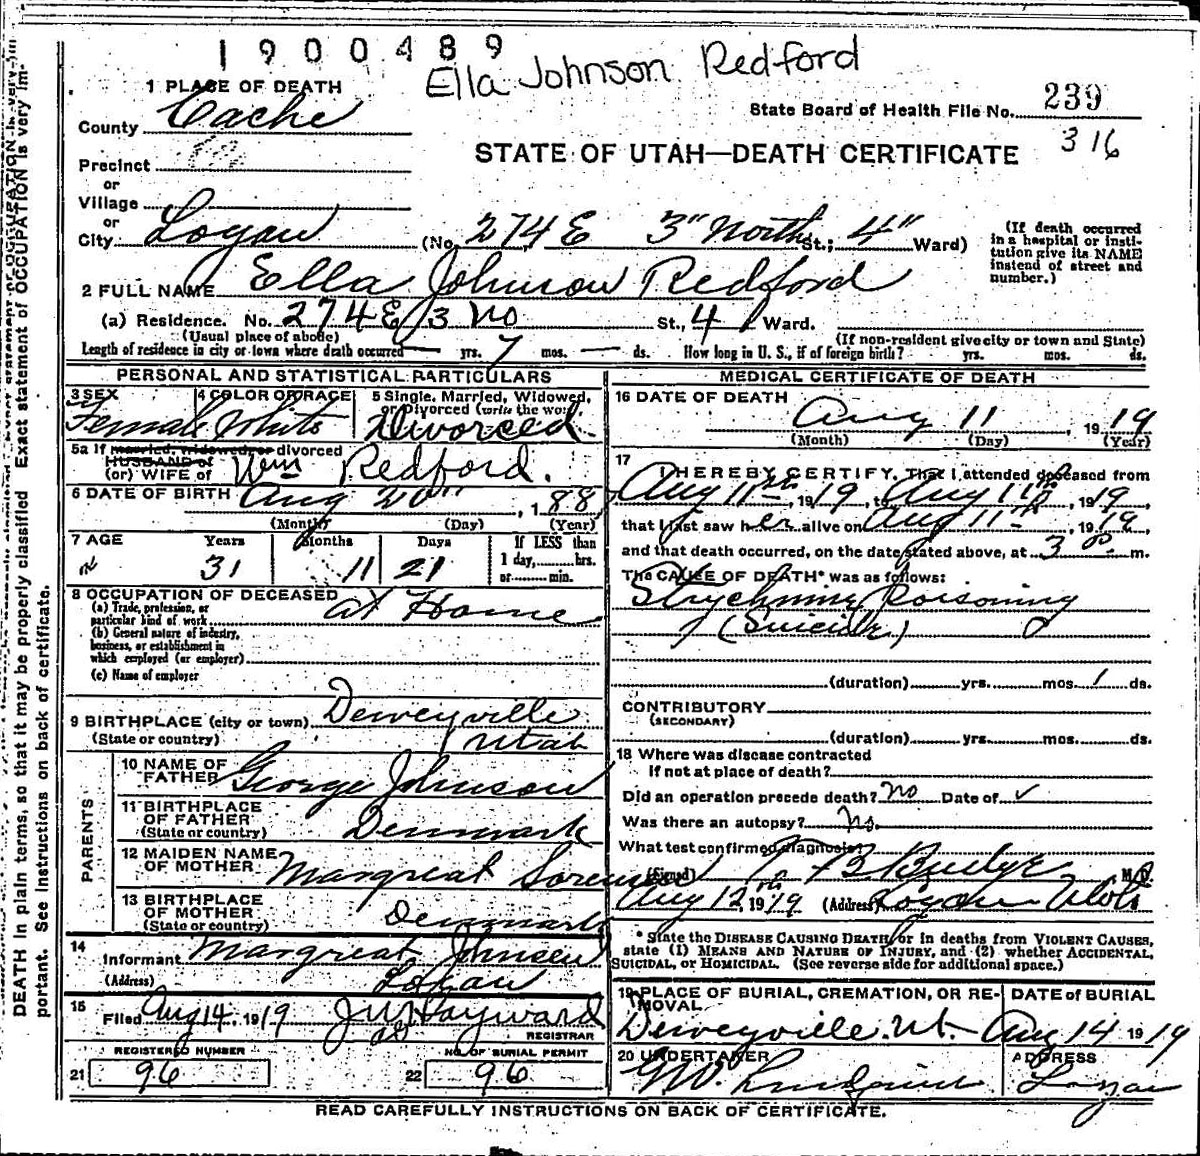 1900489
Ella Johnson Redford
1 PLACE OF DEATH
County Cache
State Board of Health File No. 239
316
Precinct
STATE OF UTAH—DEATH CERTIFICATE
or
Village
or
City Logan (No. 274 E 3" North St.; 4" Ward)
(If death occurred in a hospital or institution give its NAME instead of street and number.)
2 FULL NAME Ella Johnson Redford
(a) Residence. No. 274 E 3 No St., 4 Ward.
(Usual place of abode) (If non-resident give city or town and State)
Length of residence in city or town where death occurred — yrs. 7 mos. — ds. How long in U. S., if of foreign birth? yrs. mos. ds.
PERSONAL AND STATISTICAL PARTICULARS
3 SEX Female
4 COLOR OR RACE White
5 Single, Married, Widowed, or Divorced (write the word) Divorced
5a If married, widowed, or divorced
HUSBAND of
(or) WIFE of Wm Redford.
6 DATE OF BIRTH Aug 20", 188
(Month) (Day) (Year)
7 AGE Years Months Days If LESS than 1 day, hrs. or min.
31 11 21
8 OCCUPATION OF DECEASED at Home
(a) Trade, profession, or particular kind of work
(b) General nature of industry, business, or establishment in which employed (or employer)
(c) Name of employer
9 BIRTHPLACE (city or town) Deweyville
(State or country) Utah
PARENTS
10 NAME OF FATHER George Johnson
11 BIRTHPLACE OF FATHER (State or country) Denmark
12 MAIDEN NAME OF MOTHER Margreat Sorensen
13 BIRTHPLACE OF MOTHER (State or country) Denmark
14 Informant Margreat Johnsen
(Address) Logan
15 Filed Aug 14, 1919 J W Hayward
REGISTRAR
REGISTERED NUMBER NO. OF BURIAL PERMIT
21 96 22 96
MEDICAL CERTIFICATE OF DEATH
16 DATE OF DEATH
Aug 11 1919
(Month) (Day) (Year)
17 I HEREBY CERTIFY, That I attended deceased from
Aug 11th, 1919, to Aug 11th, 1919
that I last saw her alive on Aug 11th, 1919
and that death occurred, on the date stated above, at 3 P m.
The CAUSE OF DEATH* was as follows:
Strychnine Poisoning
(Suicide)
(duration) yrs. mos. 1 ds.
CONTRIBUTORY
(SECONDARY)
(duration) yrs. mos. ds.
18 Where was disease contracted
If not at place of death?
Did an operation precede death? no Date of ✓
Was there an autopsy? No.
What test confirmed diagnosis?
(Signed) B Budge M.D.
Aug 12th, 1919 (Address) Logan Utah
* State the DISEASE CAUSING DEATH, or in deaths from VIOLENT CAUSES,
state (1) MEANS AND NATURE OF INJURY, and (2) whether ACCIDENTAL,
SUICIDAL, or HOMICIDAL. (See reverse side for additional space.)
19 PLACE OF BURIAL, CREMATION, OR REMOVAL DATE of BURIAL
Deweyville. Ut. Aug 14 1919
20 UNDERTAKER ADDRESS
Logan
READ CAREFULLY INSTRUCTIONS ON BACK OF CERTIFICATE.
DEATH in plain terms, so that it may be properly classified. Exact statement of OCCUPATION is very important. See instructions on back of certificate.